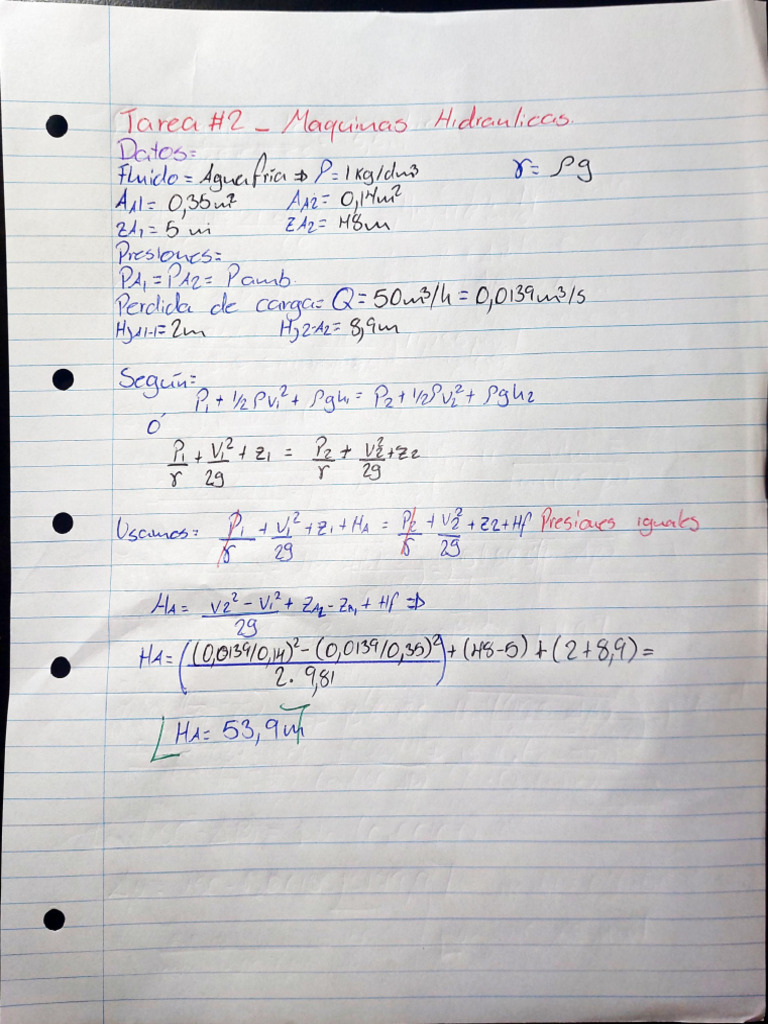 Tarea #2 - Maquinas Hidraulicas.
Datos:
Fluido = Agua fria => ρ = 1 kg/dm³ γ = ρg
AA1 = 0,35m² AA2 = 0,14m²
ZA1 = 5 m ZA2 = 48m
Presiones:
PA1 = PA2 = Pamb.
Perdida de carga = Q = 50m³/h = 0,0139m³/s
H,A1-1 = 2m H,2-A2 = 8,9m
Según:
P1 + 1/2 ρv1² + ρgh1 = P2 + 1/2 ρv2² + ρgh2
Ó
P1/γ + V1²/2g + z1 = P2/γ + V2²/2g + z2
Usamos: P1/γ + V1²/2g + z1 + HA = P2/γ + V2²/2g + z2 + Hf Presiones iguales
HA = V2² - V1²/2g + ZA2 - ZA1 + Hf =>
HA = ((0,0139/0,14)² - (0,0139/0,35)²/2 · 9,81) + (48-5) + (2+8,9) =
HA = 53,9m